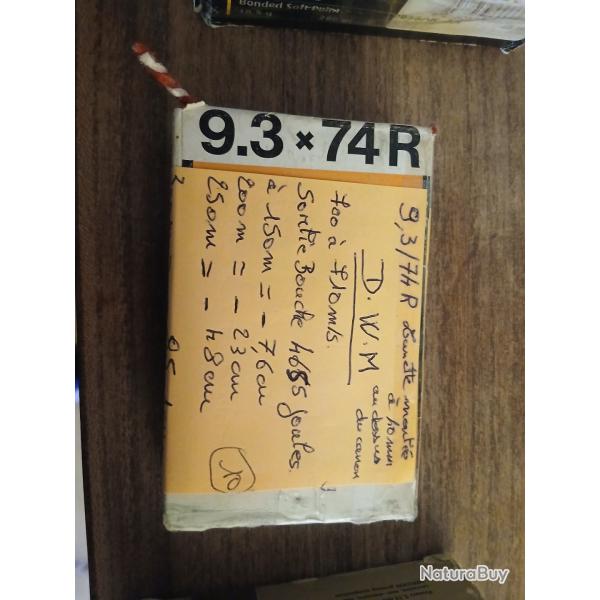 Bonded Soft-Point
9.3 × 74R
9,3/74R Lunette montée
à 40 mm
D.W.M au dessus
du canon
700 à 710 m/s.
Sortie Bouche 4685 joules.
à 150m = - 7,6 cm
200m = - 23 cm
250m = - 48 cm
10
NaturaBuy